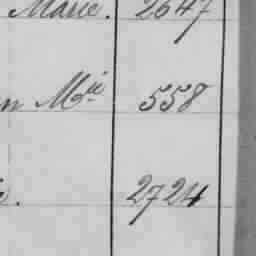 Marie. 2647
n Mie 558
e. 2724